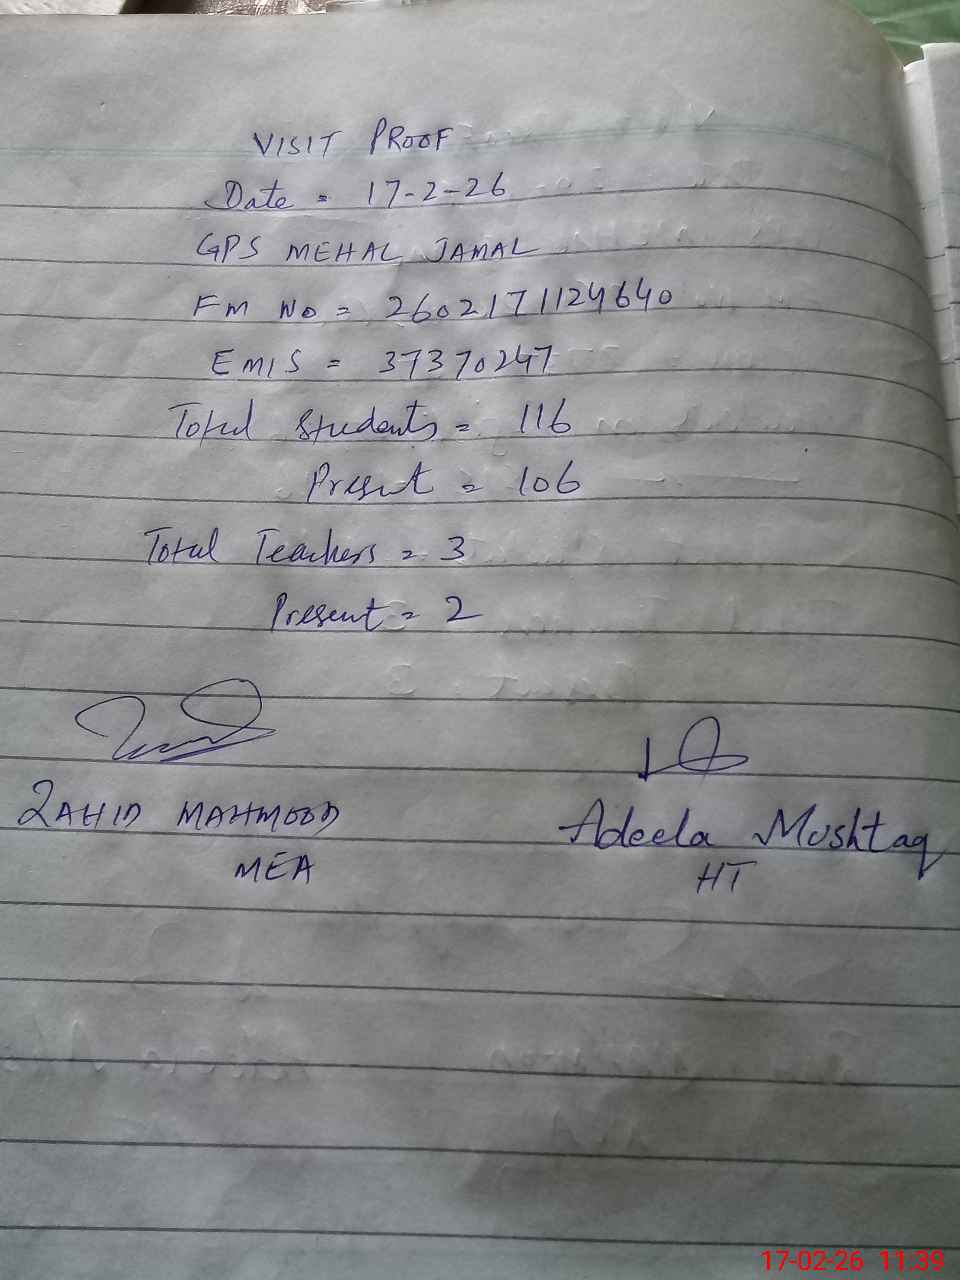 VISIT PROOF
Date = 17-2-26
GPS MEHAL JAMAL
FM NO = 2602171124640
EMIS = 37370247
Total Students = 116
Present = 106
Total Teachers = 3
Present = 2
ZAHID MAHMOOD
MEA
Adeela Mushtaq
HT
17-02-26 11:39